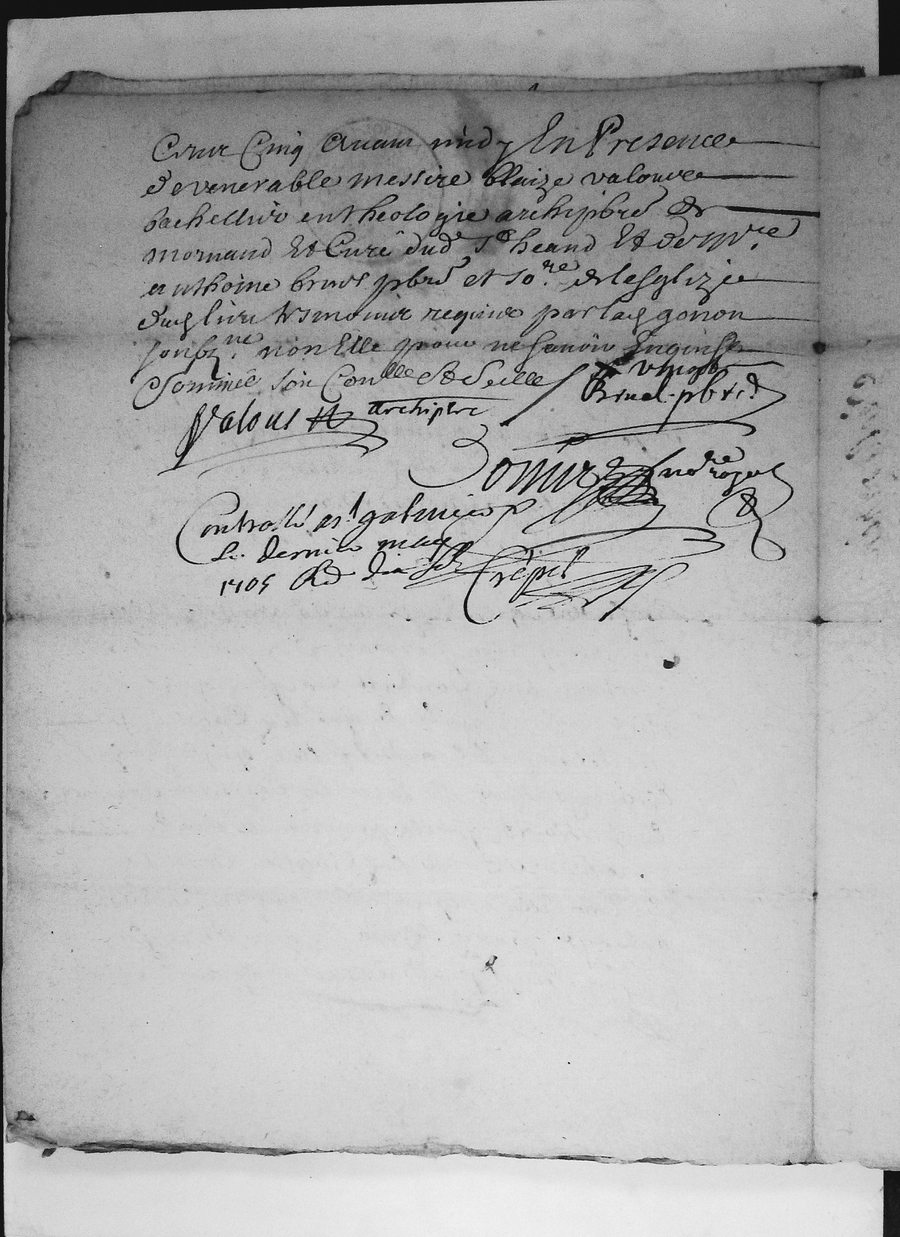 Cens Cinq Avant midy En Presence
de venerable messire Blaize valouse
bachellier en theologie archipbre de
mornand Et Curé dud. St heand Et de mre
anthoine bruel pbre et so.re de lesglize
dud lieu tesmoins requis par lad gonon
soubz.ne non Elle pour ne scavoir Enquise
Sommée Son Con.lle Et Seelle
Valous archiptre
Bruel pbre
no.re royal
Controllé a St galmier
Le dernier may
1705 Crépet